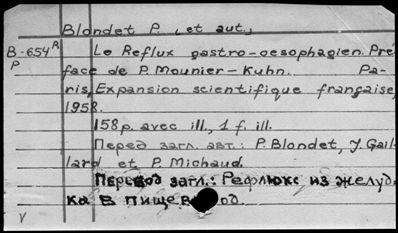 Blondet P. (et aut.)
B-654R Le Reflux gastro-oesophagien. Pré-
P face de P. Mounier-Kuhn. Pa-
ris, Expansion scientifique française,
1958.
158 p. avec ill., 1 f. ill.
Перед загл. авт.: P. Blondet, J. Gail-
lard et P. Michaud.
Перевод загл.: Рефлюкс из желуд-
ка в пищевод.
V